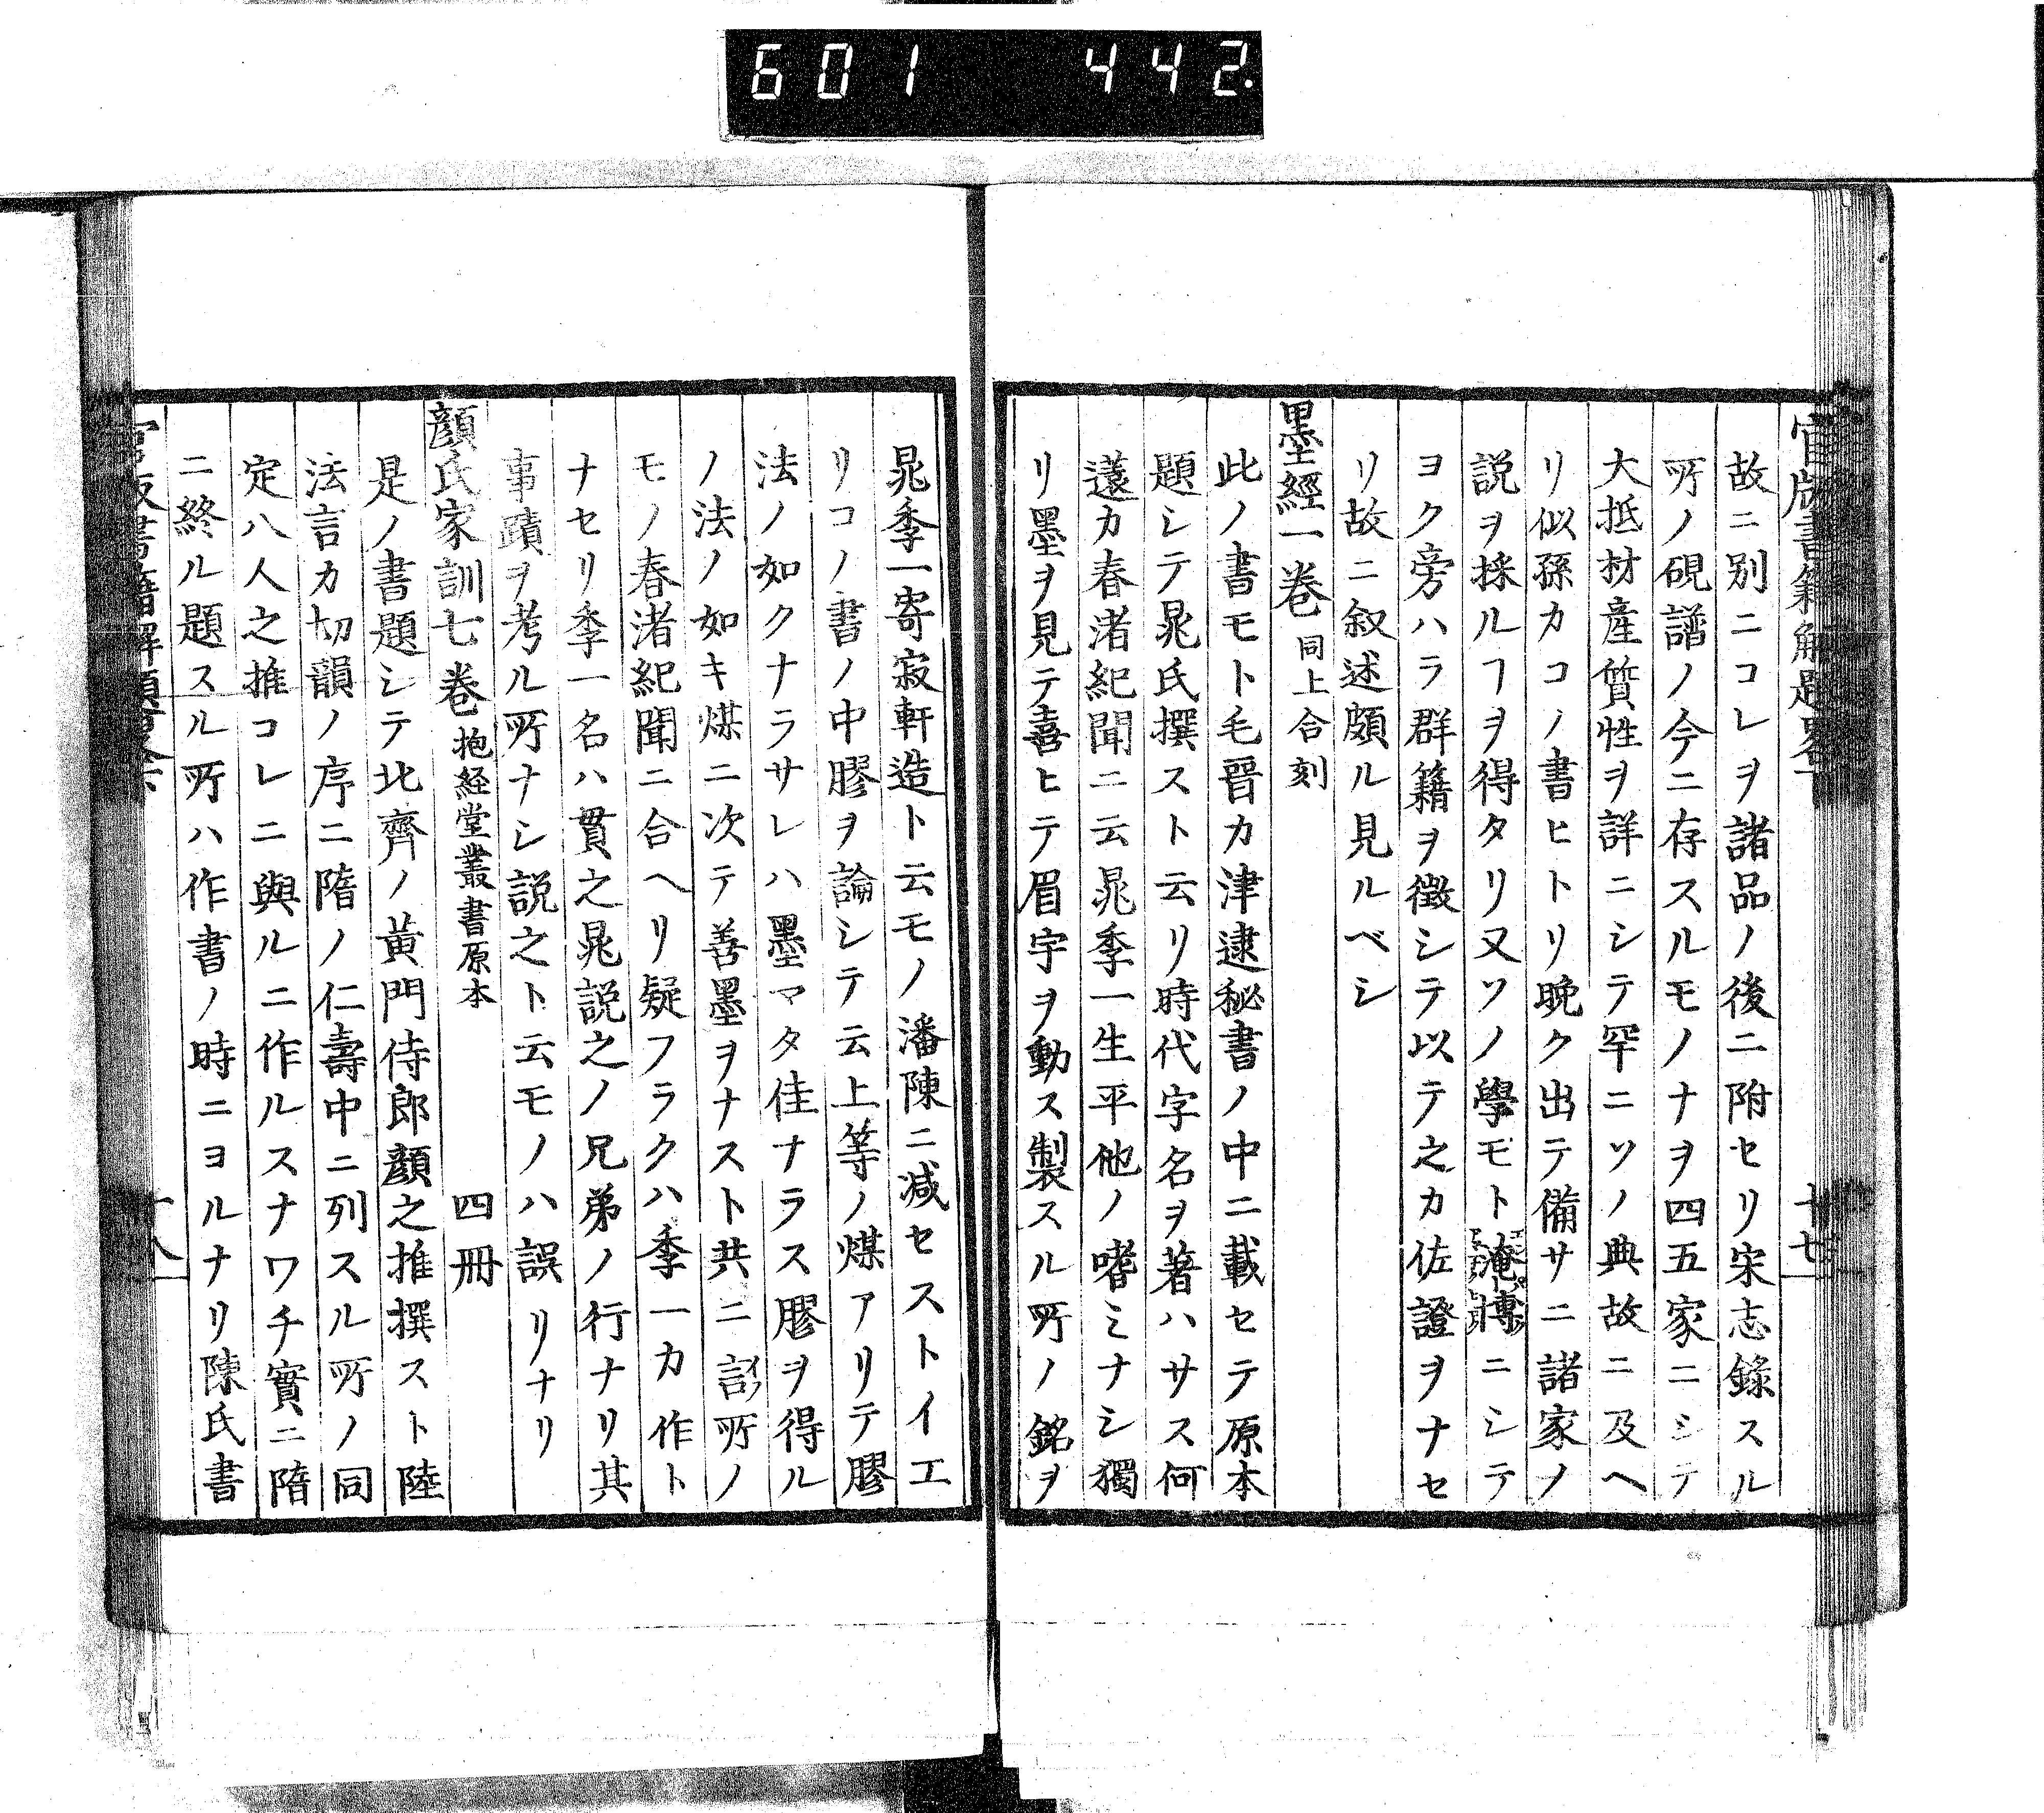 601 442.
官版書籍解題畧下 十七
故ニ別ニコレヲ諸品ノ後ニ附セリ宋志錄スル
所ノ硯譜ノ今ニ存スルモノナヲ四五家ニシテ
大抵材産質性ヲ詳ニシテ罕ニソノ典故ニ及ヘ
リ似孫カコノ書ヒトリ晩ク出テ備サニ諸家ノ
説ヲ採ルヿヲ得タリ又ソノ學モト淹博ニシテ
ヨク旁ハラ群籍ヲ徴シテ以テ之カ佐證ヲナセ
リ故ニ叙述頗ル見ルベシ
墨經一巻 同上合刻
此ノ書モト毛晉カ津逮秘書ノ中ニ載セテ原本
題シテ晁氏撰スト云リ時代字名ヲ著ハサス何
薳カ春渚紀聞ニ云晁季一生平他ノ嗜ミナシ獨
リ墨ヲ見テ喜ヒテ眉宇ヲ動ス製スル所ノ銘ヲ
晁季一寄寂軒造ト云モノ潘陳ニ减セストイエ
リコノ書ノ中膠ヲ論シテ云上等ノ煤アリテ膠
法ノ如クナラサレハ墨マタ佳ナラス膠ヲ得ル
ノ法ノ如キ煤ニ次テ善墨ヲナスト共ニ言所ノ
モノ春渚紀聞ニ合ヘリ疑フラクハ季一カ作ト
ナセリ季一名ハ貫之晁説之ノ兄弟ノ行ナリ其
事蹟ヲ考ル所ナシ説之ト云モノハ誤リナリ
顔氏家訓七巻 抱経堂叢書原本 四冊
是ノ書題シテ北齊ノ黄門侍郎顔之推撰スト陸
法言カ切韻ノ序ニ隋ノ仁壽中ニ列スル所ノ同
定八人之推コレニ與ルニ作ルスナワチ實ニ隋
ニ終ル題スル所ハ作書ノ時ニヨルナリ陳氏書
官版書籍解題畧下 十八